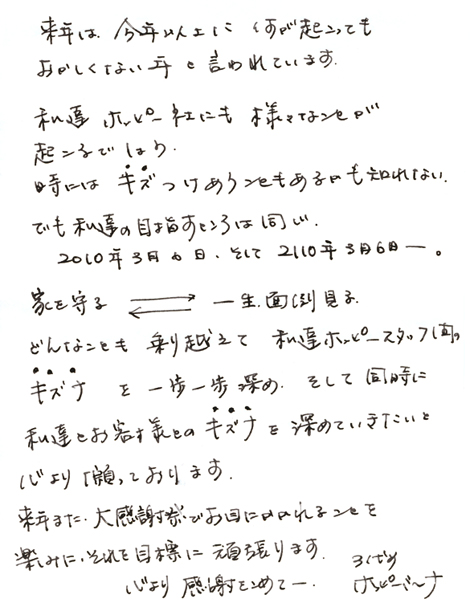 来年は、今年以上に何が起こっても
おかしくない年と言われています。
私達ホッピー社にも様々なことが
起こるでしょう。
時にはキズつけあうこともあるかも知れない。
でも私達の目指すところは同じ。
2010年3月6日、そして2110年3月6日―。
家を守る ⇄ 一生、面倒見る
どんなことも乗り越えて 私達ホッピースタッフ間の
キズナを一歩一歩深め、そして同時に
私達とお客様とのキズナを深めていきたいと
心より願っております。
来年また、大感謝祭でお目にかかれることを
楽しみに、それを目標に頑張ります。
心より感謝をこめて―.
ホッピーミーナ